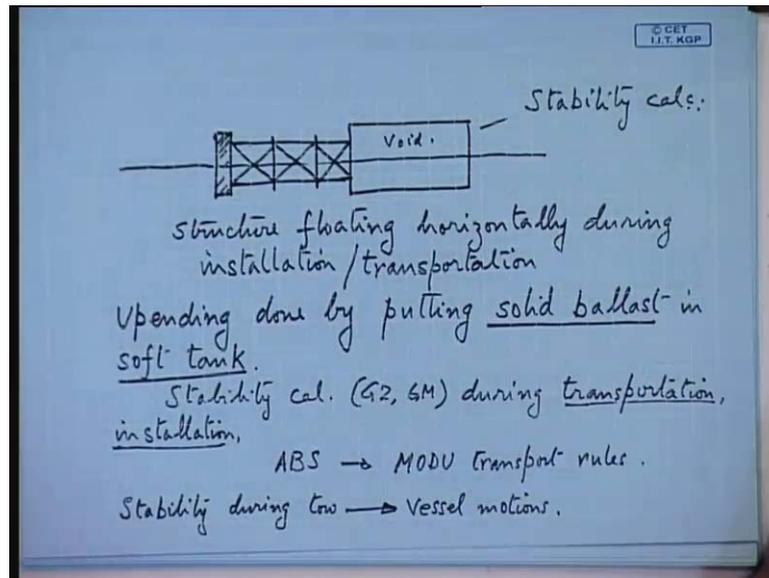 © CET
I.I.T. KGP
Stability calc:
Void.
Structure floating horizontally during
installation/transportation
Upending done by putting solid ballast in
soft tank.
Stability cal. (GZ, GM) during transportation,
installation,
ABS → MODU transport rules.
Stability during tow → Vessel motions.